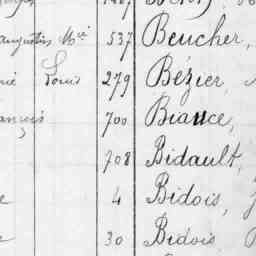 augustin Mie 537 Beucher,
Louis 279 Bézier,
700 Biance,
708 Bidault,
4 Bidois,
30 Bidois